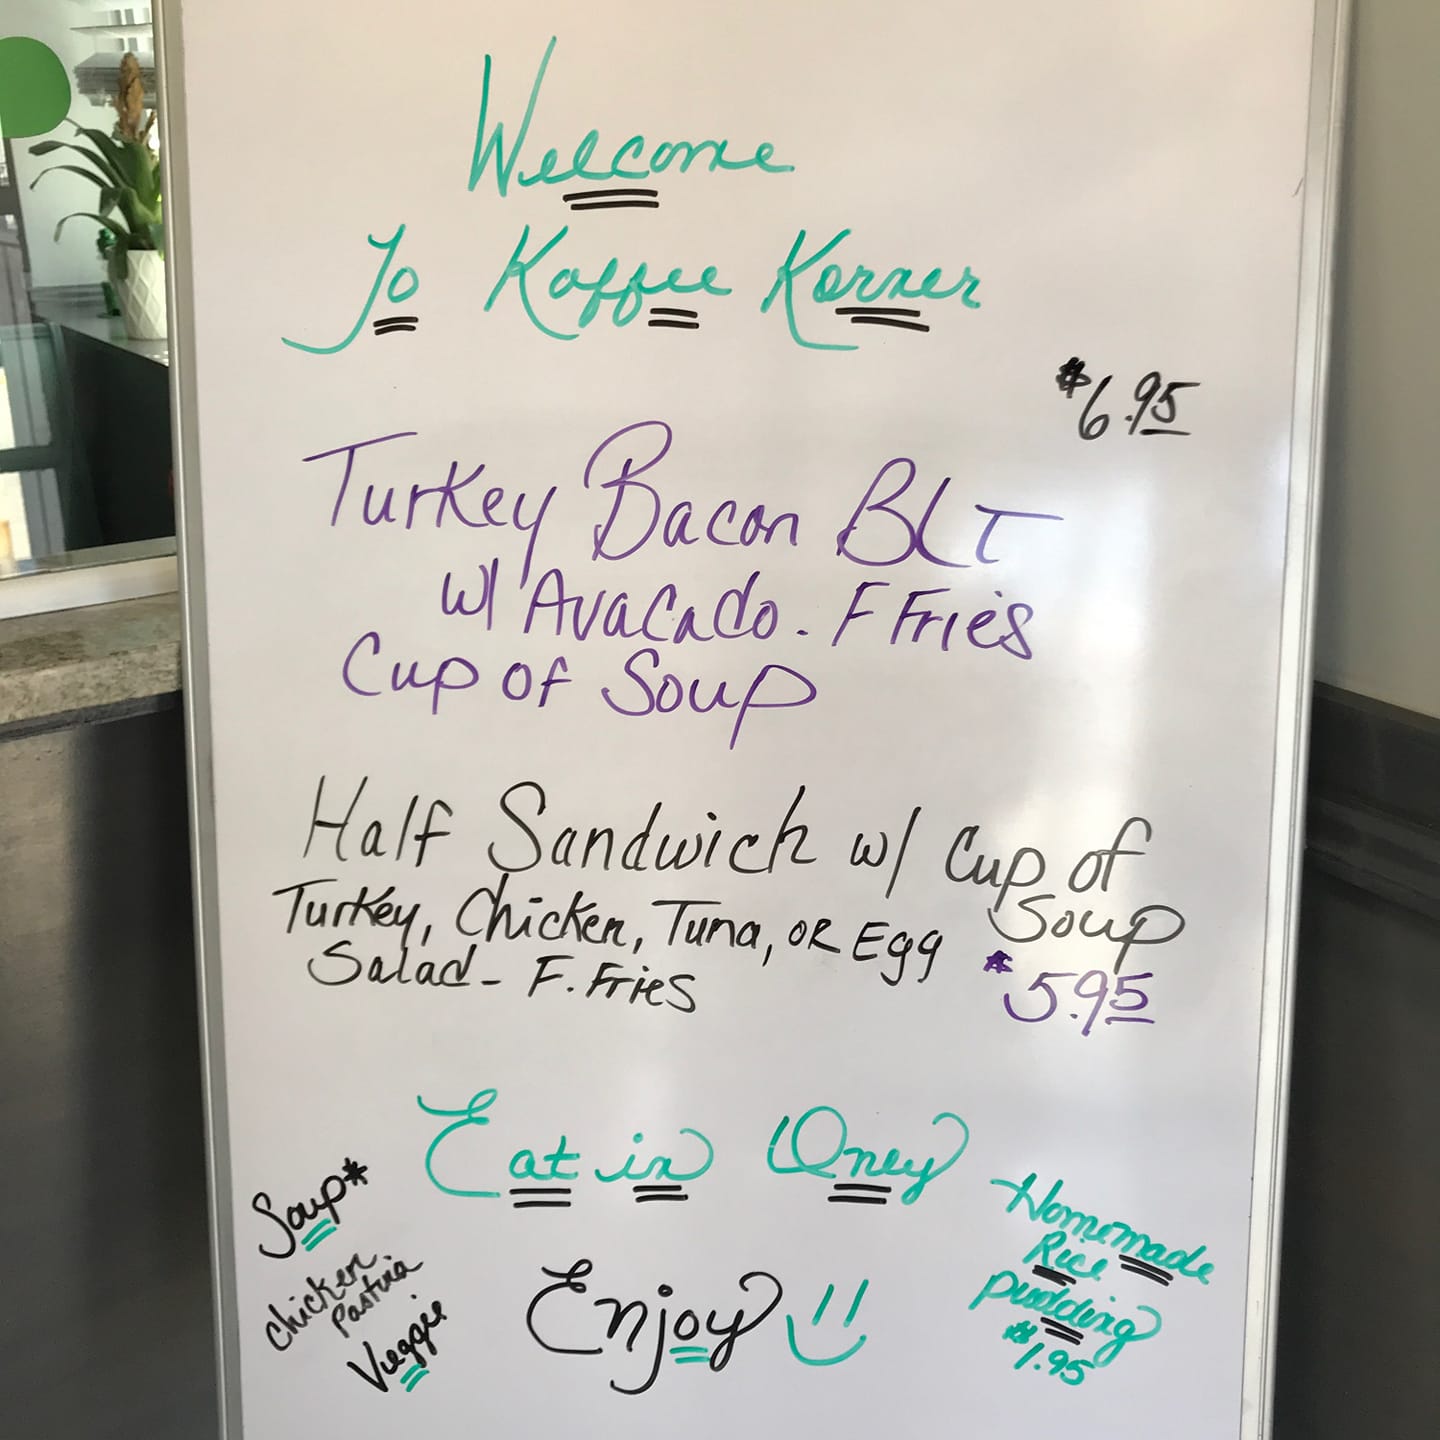 Welcome
To Koffee Korner
$6.95
Turkey Bacon BLT
w/ Avacado. F Fries
Cup of Soup
Half Sandwich w/ Cup of
Soup
Turkey, Chicken, Tuna, or Egg
Salad - F. Fries
$5.95
Eat in Oney
Soup*
Chicken
Pastina
Veggie
Enjoy
Homemade
Rice
Pudding
$1.95